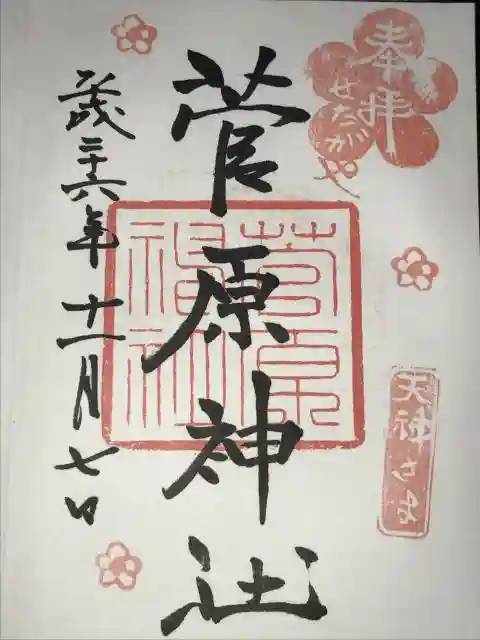 奉拝
せたがや
菅原神社
菅原
神社
天神さま
平成二十六年十一月七日